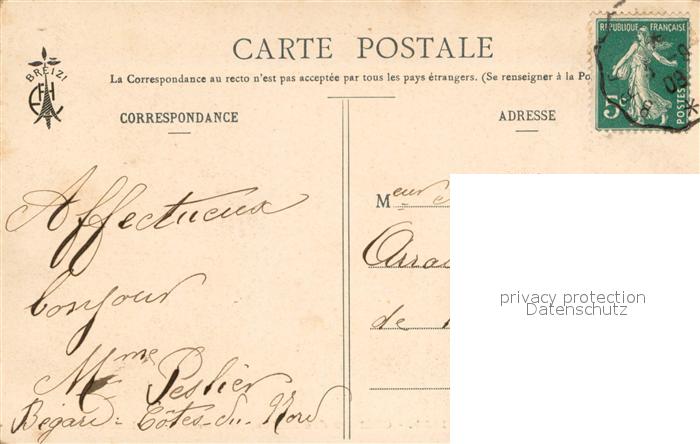 CARTE POSTALE
BREIZ!
La Correspondance au recto n'est pas acceptée par tous les pays étrangers. (Se renseigner à la Po
CORRESPONDANCE
ADRESSE
REPUBLIQUE FRANÇAISE
5c
POSTES
Affectueux
bonjour
Mme Peslier
Bégard - Côtes-du-Nord
Meur
de
privacy protection
Datenschutz